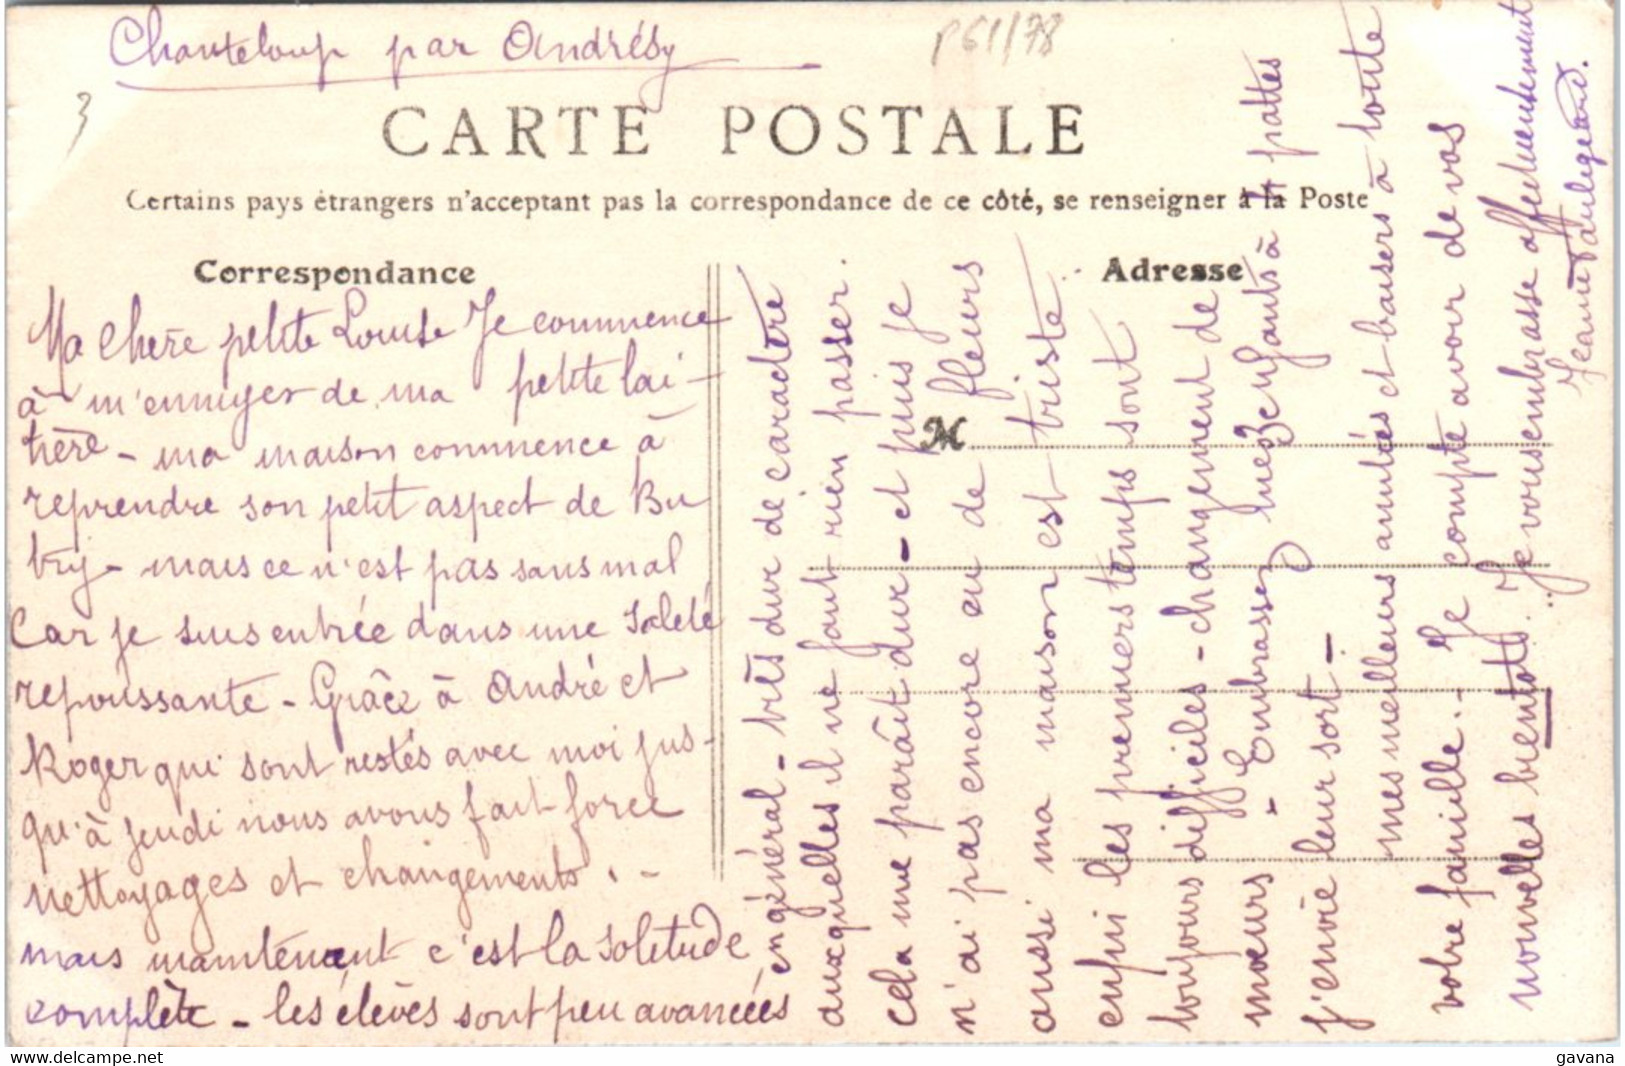 Chanteloup par Andrésy
P61/78
3
CARTE POSTALE
Certains pays étrangers n'acceptant pas la correspondance de ce côté, se renseigner à la Poste
Correspondance
Adresse
M
Ma chère petite Louise Je commence
à m'ennuyer de ma petite lai-
tière - ma maison commence à
reprendre son petit aspect de Bu
bry - mais ce n'est pas sans mal
Car je suis entrée dans une saleté
repoussante - Grâce à André et
Roger qui sont restés avec moi jus-
qu'à jeudi nous avons fait force
nettoyages et changements. -
mais maintenant c'est la solitude
complète - les élèves sont peu avancées
en général - très dur de caractère
auxquelles il ne faut rien passer.
cela me paraît dur - et puis je
n'ai pas encore eu de fleurs
aussi ma maison est triste
enfin les premiers temps sont
toujours difficiles - changement de
mœurs - Embrassez mes 3 enfants à 4 pattes
j'envie leur sort -
mes meilleurs amitiés et baisers à toute
votre famille. - Je compte avoir de vos
nouvelles bientôt. Je vous embrasse affectueusement
Jeanne
gavana